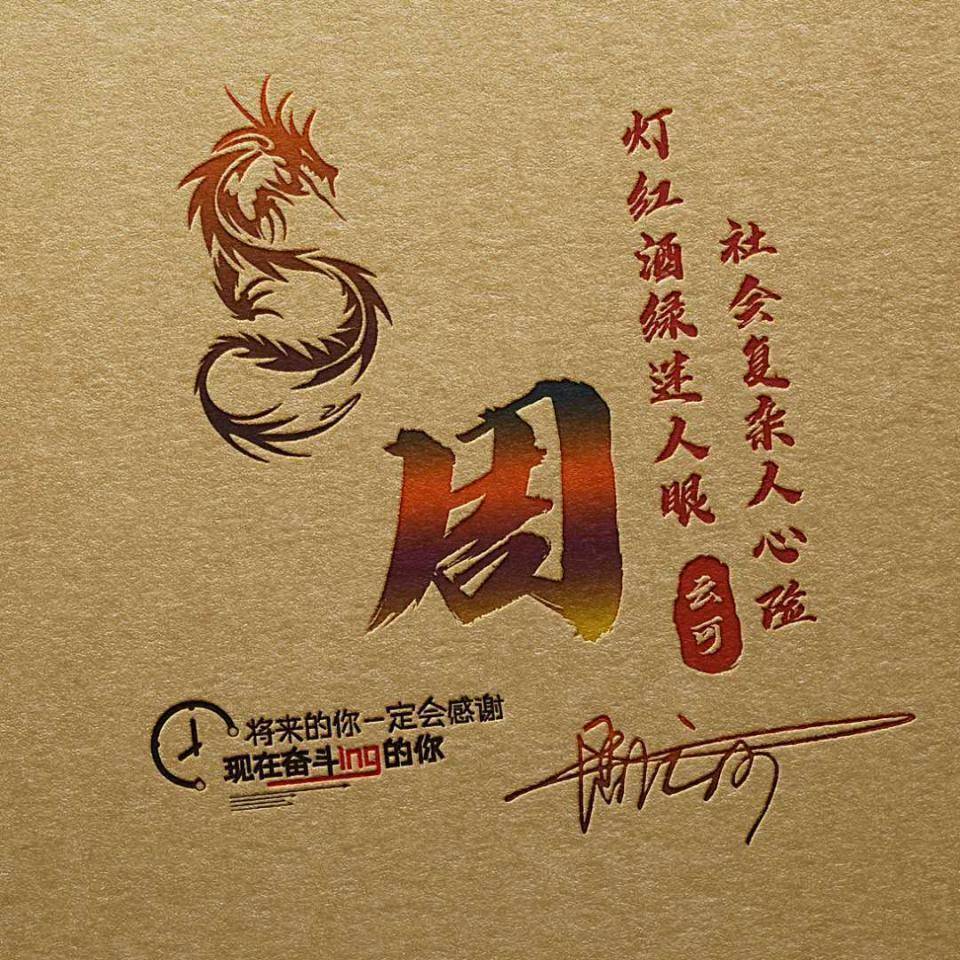 社会复杂人心险
灯红酒绿迷人眼
云可
周
将来的你一定会感谢
现在奋斗ing的你
周云可